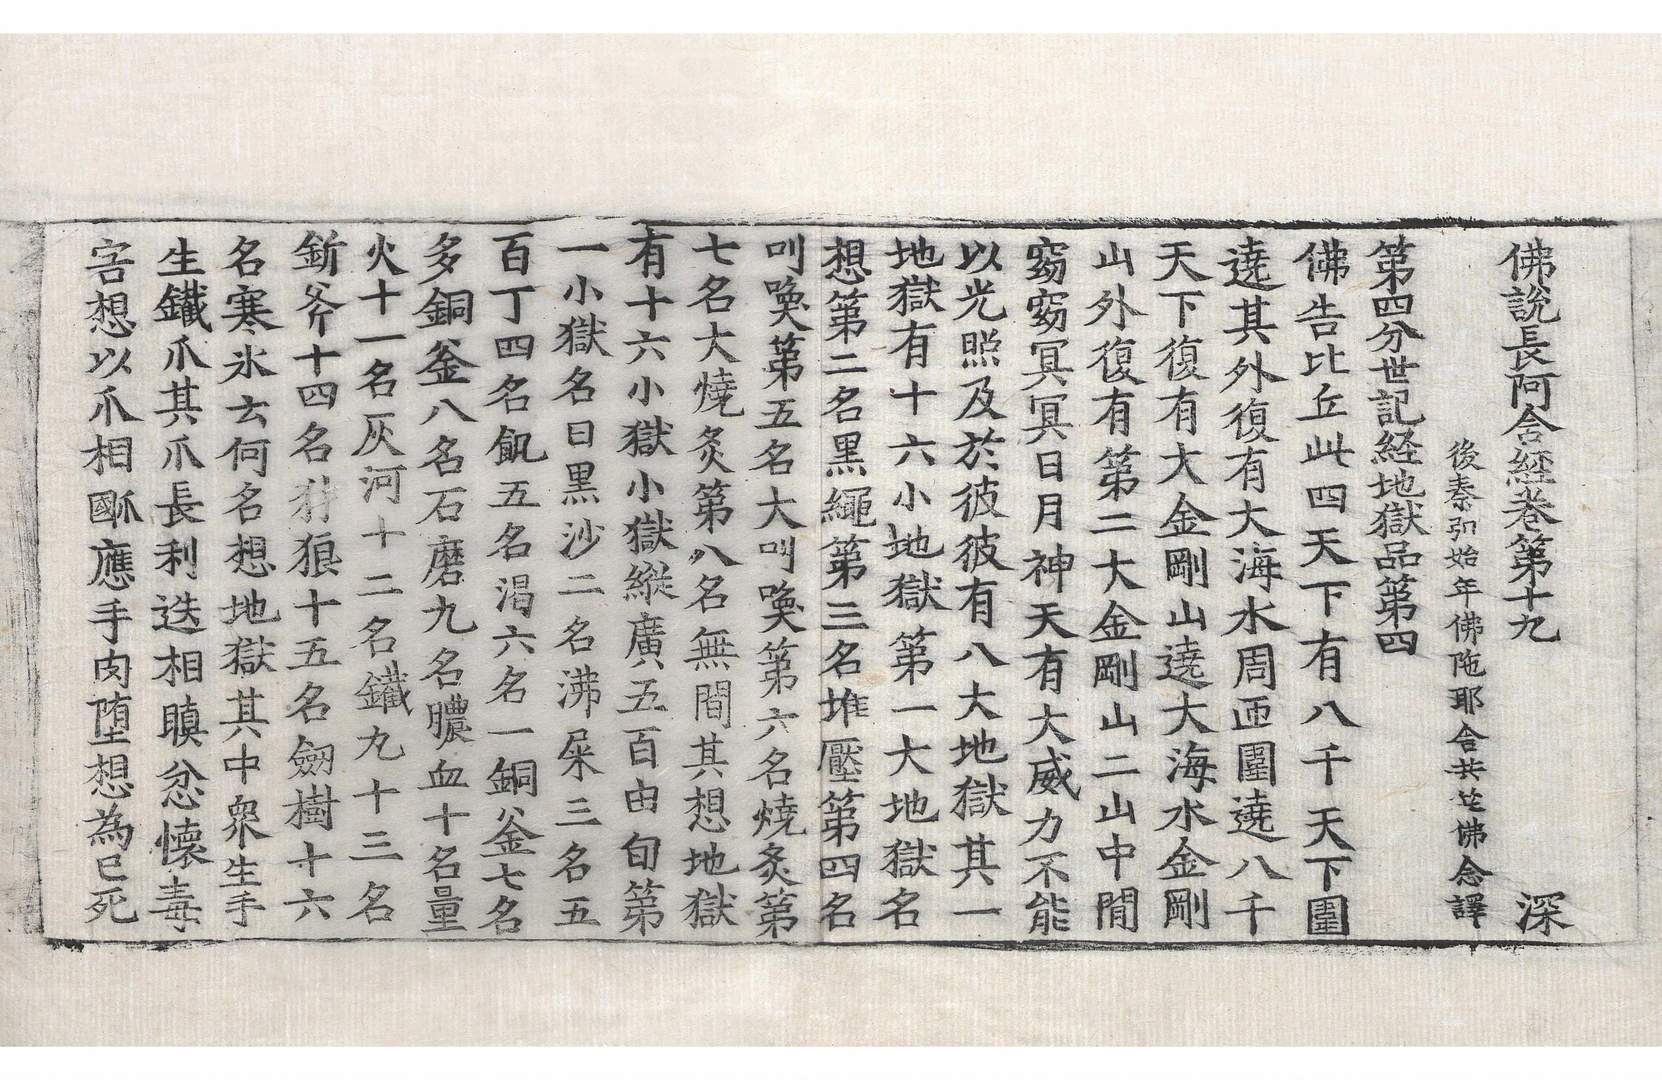 佛說長阿含經卷第十九 深
後秦弘始年佛陁耶舍共笁佛念譯
第四分世記経地獄品第四
佛告比丘此四天下有八千天下圍
遶其外復有大海水周匝圍遶八千
天下復有大金剛山遶大海水金剛
山外復有第二大金剛山二山中間
窈窈冥冥日月神天有大威力不能
以光照及於彼彼有八大地獄其一
地獄有十六小地獄第一大地獄名
想第二名黑繩第三名堆壓第四名
叫喚第五名大叫喚第六名燒炙第
七名大燒炙第八名無間其想地獄
有十六小獄小獄縱廣五百由旬第
一小獄名曰黑沙二名沸屎三名五
百丁四名飢五名渴六名一銅釜七名
多銅釜八名石磨九名膿血十名量
火十一名灰河十二名鐵丸十三名
釿斧十四名犲狼十五名劒樹十六
名寒氷云何名想地獄其中眾生手
生鐵爪其爪長利迭相瞋忿懷毒
害想以爪相䤋應手肉墮想為已死